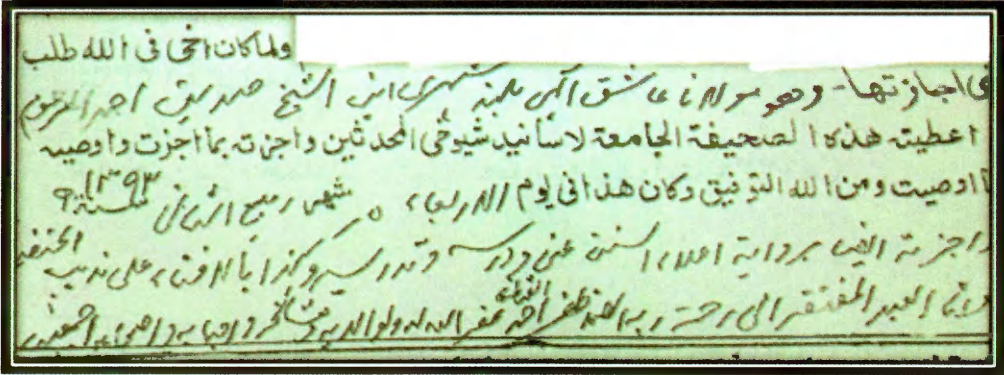 ولما كان اخى فى الله طلب
اجازتها - وهو مولانا عاشق الهى بلند شهرى ابن الشيخ صديق احمد المرحوم
اعطيته هذه الصحيفة الجامعة لاسانيد شيوخى المحدثين واجزته بما اجزت واوصيه
اوصيت ومن الله التوفيق وكان هذا فى يوم الاربعاء ٥ شهر ربيع الثانى سنة ١٣٩٣
واجزته ايضا برواية اعلاء السنن عنى ودرسه وتدريسه وكذا بالافتاء على مذهب الحنفية
وانا العبد المفتقر الى رحمة ربه الصمد ظفر احمد العثمانى غفر الله له ولوالديه ومشائخه واحبابه واصحابه اجمعين